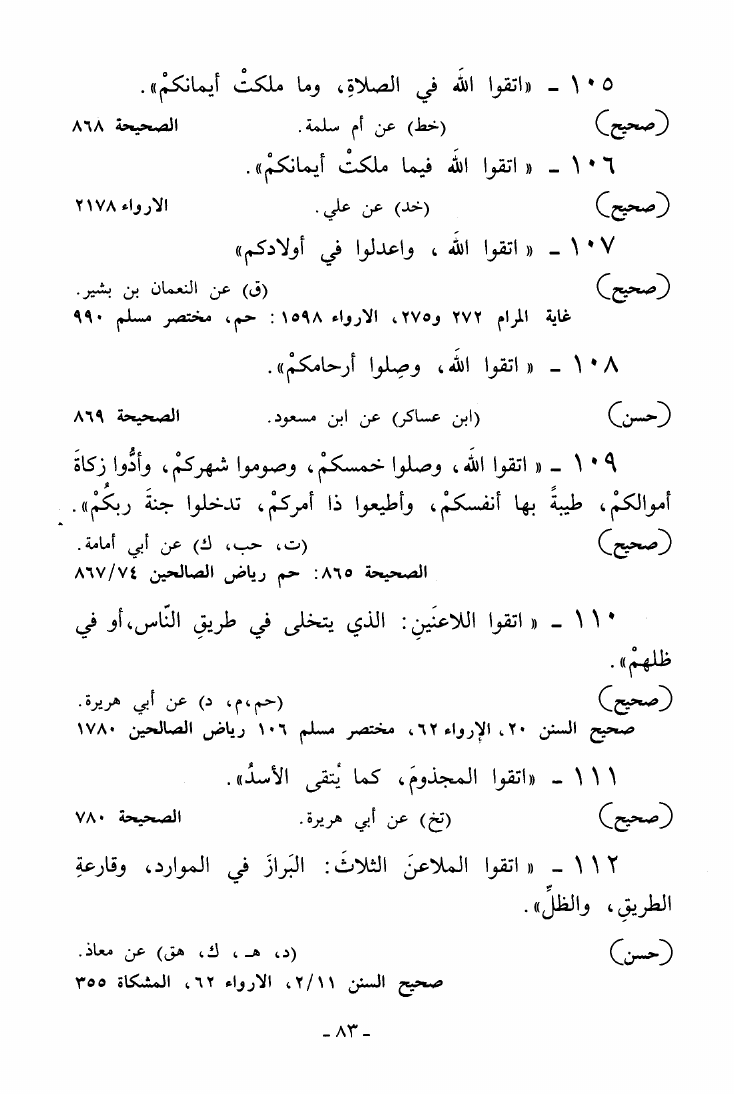 ١٠٥ ـ «اتقوا اللّه في الصلاةِ، وما ملكتْ أيمانكمْ».
(صحيح) (خط) عن أم سلمة. الصحيحة ٨٦٨
١٠٦ ـ « اتقوا اللّه فيما ملكتْ أيمانكمْ».
(صحيح) (خد) عن علي. الارواء ٢١٧٨
١٠٧ ـ « اتقوا اللّه ، واعدلوا في أولادكم»
(صحيح) (ق) عن النعمان بن بشير.
غاية المرام ٢٧٢ و٢٧٥، الارواء ١٥٩٨: حم، مختصر مسلم ٩٩٠
١٠٨ ـ « اتقوا اللّه، وصِلوا أرحامكمْ».
(حسن) (ابن عساكر) عن ابن مسعود. الصحيحة ٨٦٩
١٠٩ ـ « اتقوا اللّه، وصلوا خمسكمْ، وصوموا شهركمْ، وأدُّوا زكاةَ
أموالكمْ، طيبةً بها أنفسكمْ، وأطيعوا ذا أمركمْ، تدخلوا جنةَ ربكُمْ».
(صحيح) (ت، حب، ك) عن أبي أمامة.
الصحيحة ٨٦٥: حم رياض الصالحين ٨٦٧/٧٤
١١٠ ـ « اتقوا اللاعنَينِ: الذي يتخلى في طريقِ النّاس،أو في
ظلهمْ».
(صحيح) (حم،م، د) عن أبي هريرة.
صحيح السنن ٢٠، الإرواء ٦٢، مختصر مسلم ١٠٦ رياض الصالحين ١٧٨٠
١١١ ـ «اتقوا المجذومَ، كما يُتقى الأسدُ».
(صحيح) (تخ) عن أبي هريرة. الصحيحة ٧٨٠
١١٢ ـ « اتقوا الملاعنَ الثلاثَ: البَرازَ في الموارد، وقارعةِ
الطريقِ، والظلِّ».
(حسن) (د، هـ ، ك، هق) عن معاذ.
صحيح السنن ٢/١١، الارواء ٦٢، المشكاة ٣٥٥
ـ ٨٣ ـ